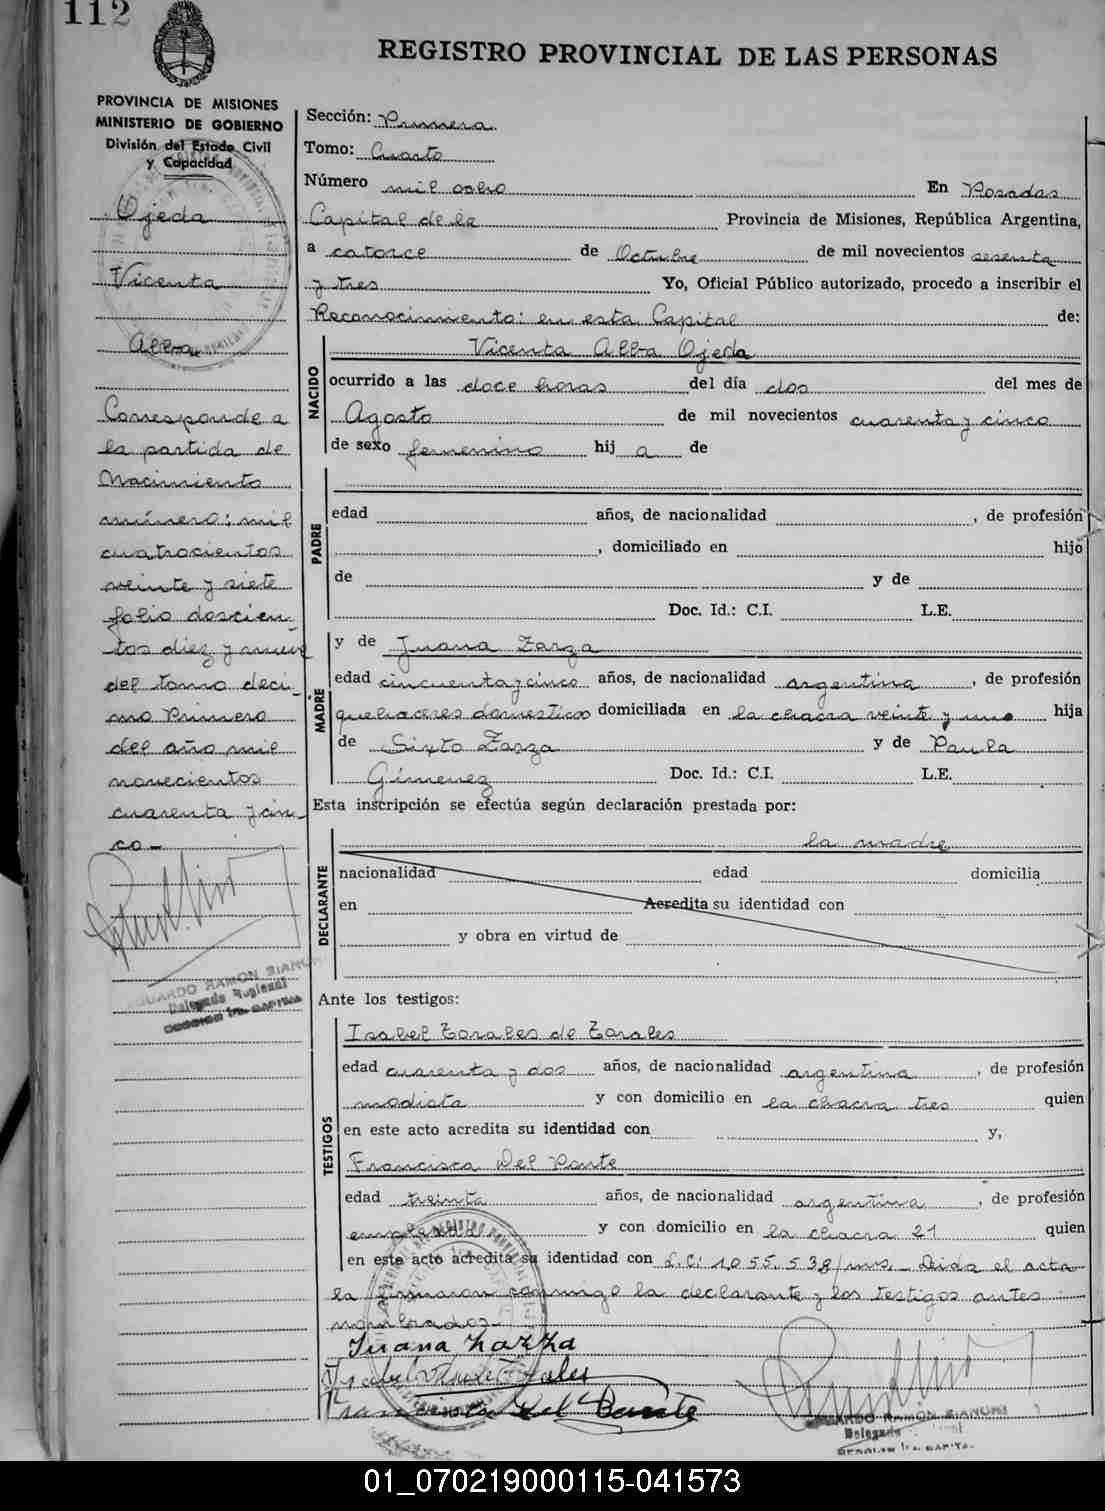 112
REGISTRO PROVINCIAL DE LAS PERSONAS
PROVINCIA DE MISIONES
MINISTERIO DE GOBIERNO
División del Estado Civil
y Capacidad
Ojeda
Vicenta
Alba
Corresponde a
la partida de
Nacimiento
número: mil
cuatrocientos
veinte y siete
folio doscien-
tos diez y nueve
del tomo deci-
mo Primero
del año mil
novecientos
cuarenta y cin-
co -
EDUARDO RAMON BIANCHI
Delegado Regional
Sección: Primera
Tomo: Cuarto
Número mil ocho En Posadas
Capital de la Provincia de Misiones, República Argentina,
a catorce de Octubre de mil novecientos sesenta
y tres Yo, Oficial Público autorizado, procedo a inscribir el
Reconocimiento: en esta Capital de:
NACIDO
Vicenta Alba Ojeda
ocurrido a las doce horas del día dos del mes de
Agosto de mil novecientos cuarenta y cinco
de sexo femenino hij a de
PADRE
edad años, de nacionalidad , de profesión
, domiciliado en hijo
de y de
Doc. Id.: C.I. L.E.
MADRE
y de Juana Zarza
edad cincuenta y cinco años, de nacionalidad argentina , de profesión
quehaceres domesticos domiciliada en la chacra veinte y uno hija
de Sixto Zarza y de Paula
Gimenez Doc. Id.: C.I. L.E.
Esta inscripción se efectúa según declaración prestada por:
DECLARANTE
la madre
nacionalidad edad domicilia
en Acredita su identidad con
y obra en virtud de
Ante los testigos:
TESTIGOS
Isabel Torales de Torales
edad cuarenta y dos años, de nacionalidad argentina , de profesión
modista y con domicilio en la chacra tres quien
en este acto acredita su identidad con y,
Francisca Del Ponte
edad treinta años, de nacionalidad argentina , de profesión
empleada y con domicilio en la chacra 21 quien
en este acto acredita su identidad con L.C. 1.055.538/mis. Leida el acta
la firmaron conmigo la declarante y los testigos antes
nombrados.-
Juana Zarza
EDUARDO RAMÓN BIANCHI
Delegado
01_070219000115-041573